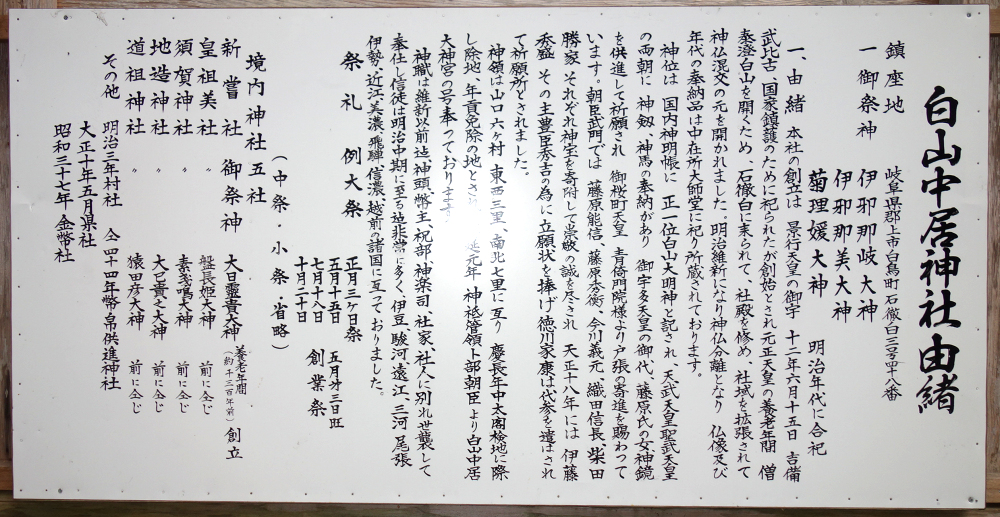 白山中居神社由緒
鎮座地　岐阜県郡上市白鳥町石徹白三号四十八番
一　御祭神　伊邪那岐大神
伊邪那美大神
菊理媛大神　明治年代に合祀
一、由緒　本社の創立は　景行天皇の御宇　十二年六月十五日　吉備
武比古、国家鎮護のために祀られたが創始とされ元正天皇の養老年間　僧
泰澄白山を開くため、石徹白に来られて、社殿を修め、社域を拡張されて
神仏混交の元を開かれました。明治維新になり神仏分離となり　仏像及び
年代の奉納品は中在所大師堂に祀り所蔵されております。
神位は　国内神明帳に　正一位白山大明神と記され、天武天皇聖武天皇
の両朝に　神剱、神馬の奉納があり　御宇多天皇の御代、藤原氏の女神鏡
を供進して祈願され　御桜町天皇　青倚門院様より戸張の寄進を賜わって
います。朝臣武門では　藤原能信、藤原秀衡、今川義元、織田信長、柴田
勝家、それぞれ神宝を寄附して崇敬の誠を尽され　天正十八年には　伊藤
秀盛　その主豊臣秀吉の為に立願状を捧げ徳川家康は代参を遣はされ
て祈願所とされました。
神領は山口六ヶ村　東西三里、南北七里に亙り　慶長年中太閤検地に際
し除地、年貢免除の地とさ　元年　神祗管領卜部朝臣より白山中居
大神宮の号奉つております
神職は維新以前迠、神頭、幣主、祝部、神楽司、社家、社人に別れ世襲して
奉仕し信徒は明治中期に至る迠非常に多く、伊豆　駿河、遠江、三河　尾張
伊勢、近江、美濃、飛騨、信濃、越前の諸国に亙っておりました。
祭礼　例大祭　正月三ヶ日祭
五月十五日　五月第三日旺
七月十八日　創業祭
十月二十日
（中祭・小祭・省略）
境内神社　五社
新嘗社　御祭神　大日孁貴大神　養老年間（約千三百年前）創立
皇祖美社　〃　盤長姫大神　前に仝じ
須賀神社　〃　素戔嗚大神　前に仝じ
地造神社　〃　大己貴大神　前に仝じ
道祖神社　〃　猿田彦大神　前に仝じ
その他　明治三年村社　仝四十四年幣帛供進神社
大正十年五月県社
昭和三十七年　金幣社